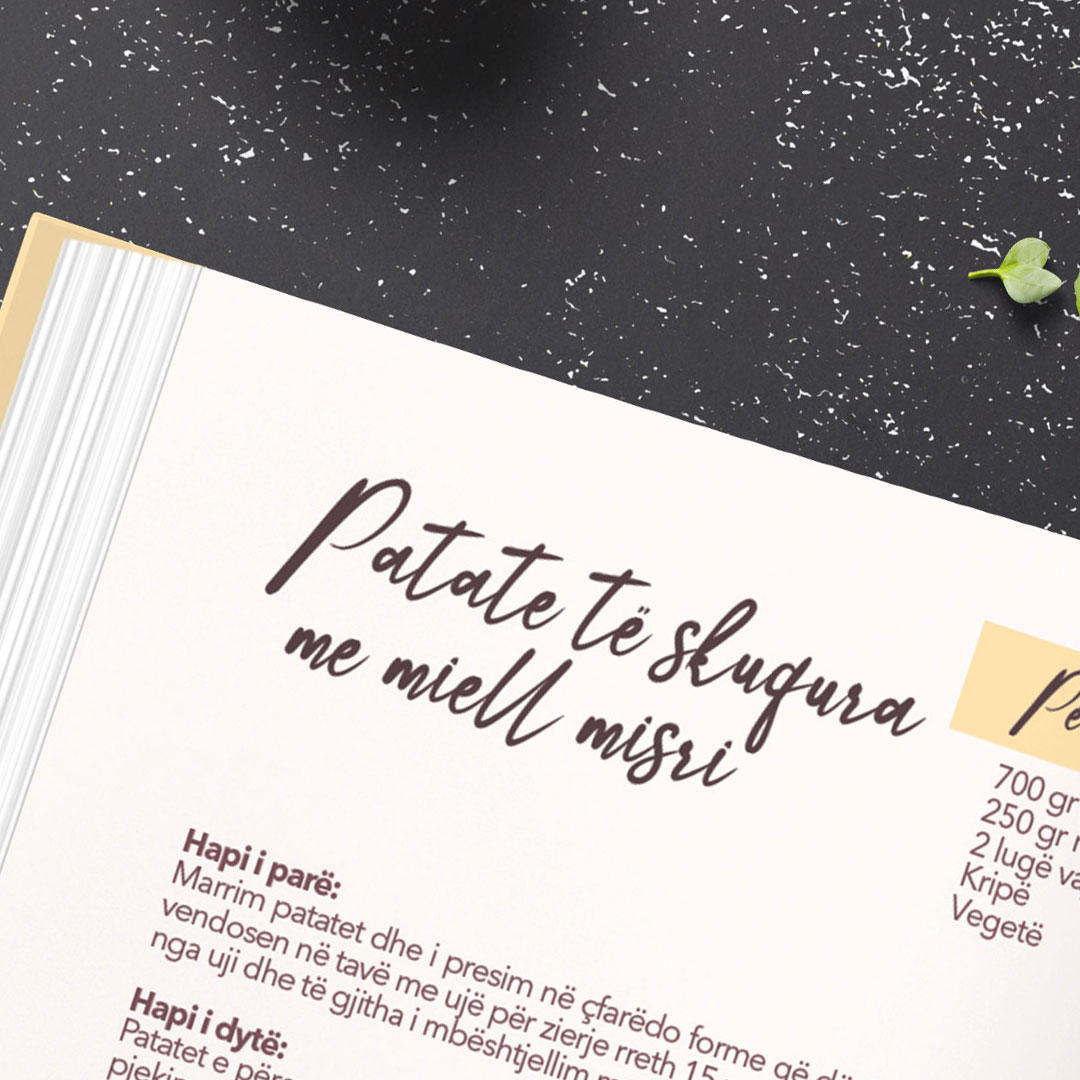 Patate të skuqura
me miell misri
700 gr
250 gr
2 lugë
Kripë
Vegetë
Hapi i parë:
Marrim patatet dhe i presim në çfarëdo forme që
vendosen në tavë me ujë për zierje rreth 15
nga uji dhe të gjitha i mbështjellim
Hapi i dytë:
Patatet e